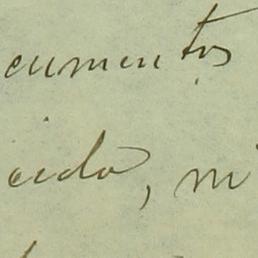 cumentos
cido, ni